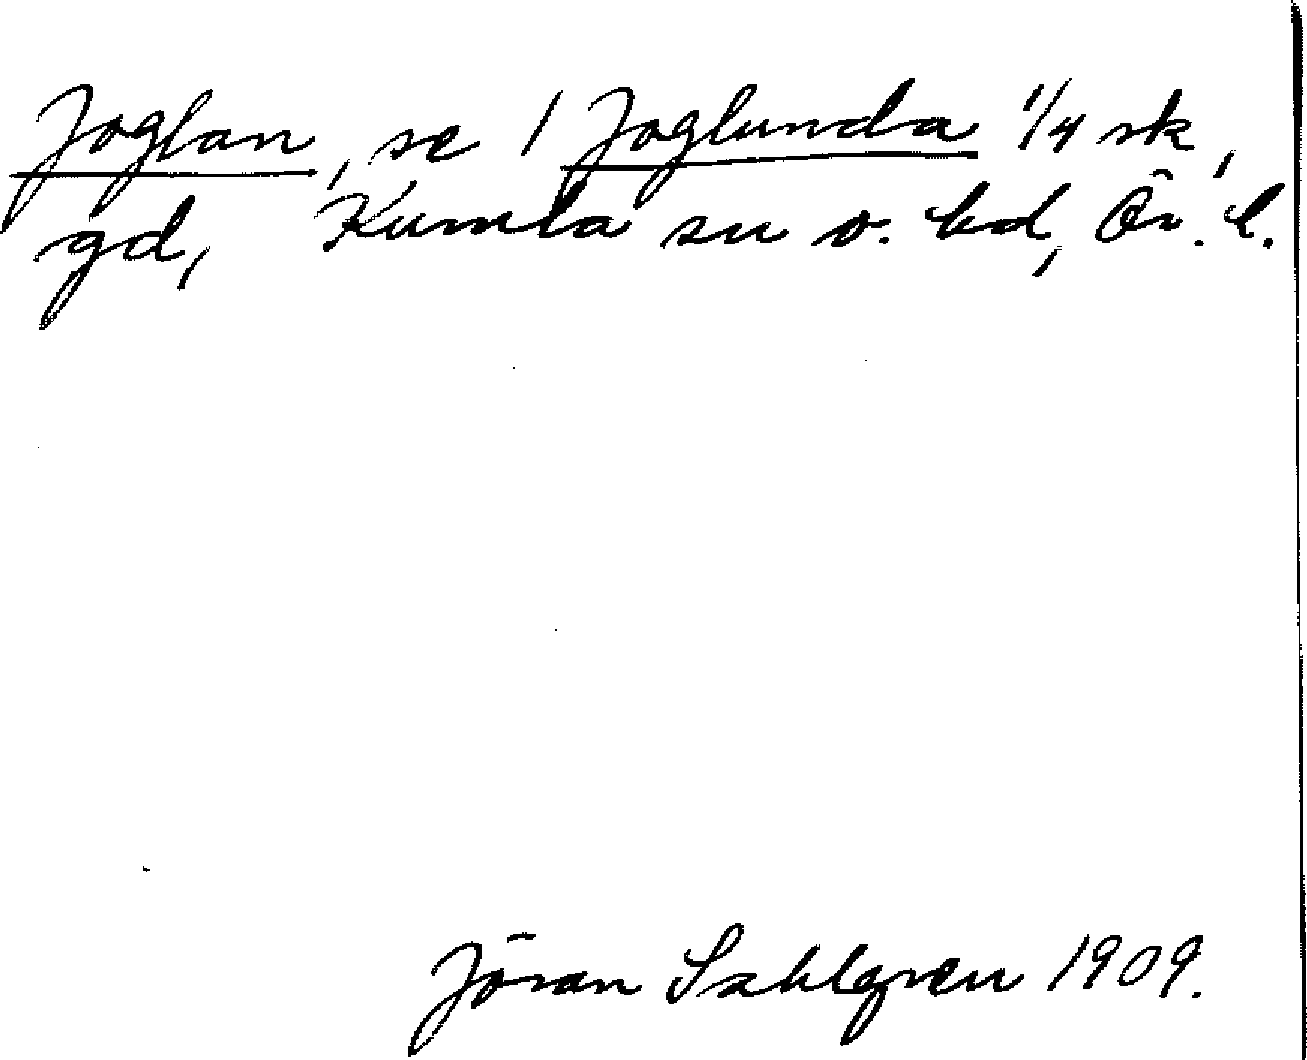 Joglan, se 1 Joglunda 1/4 sk,
gd, Kumla sn o. hd, Ör. l.
Jöran Sahlgren 1909.